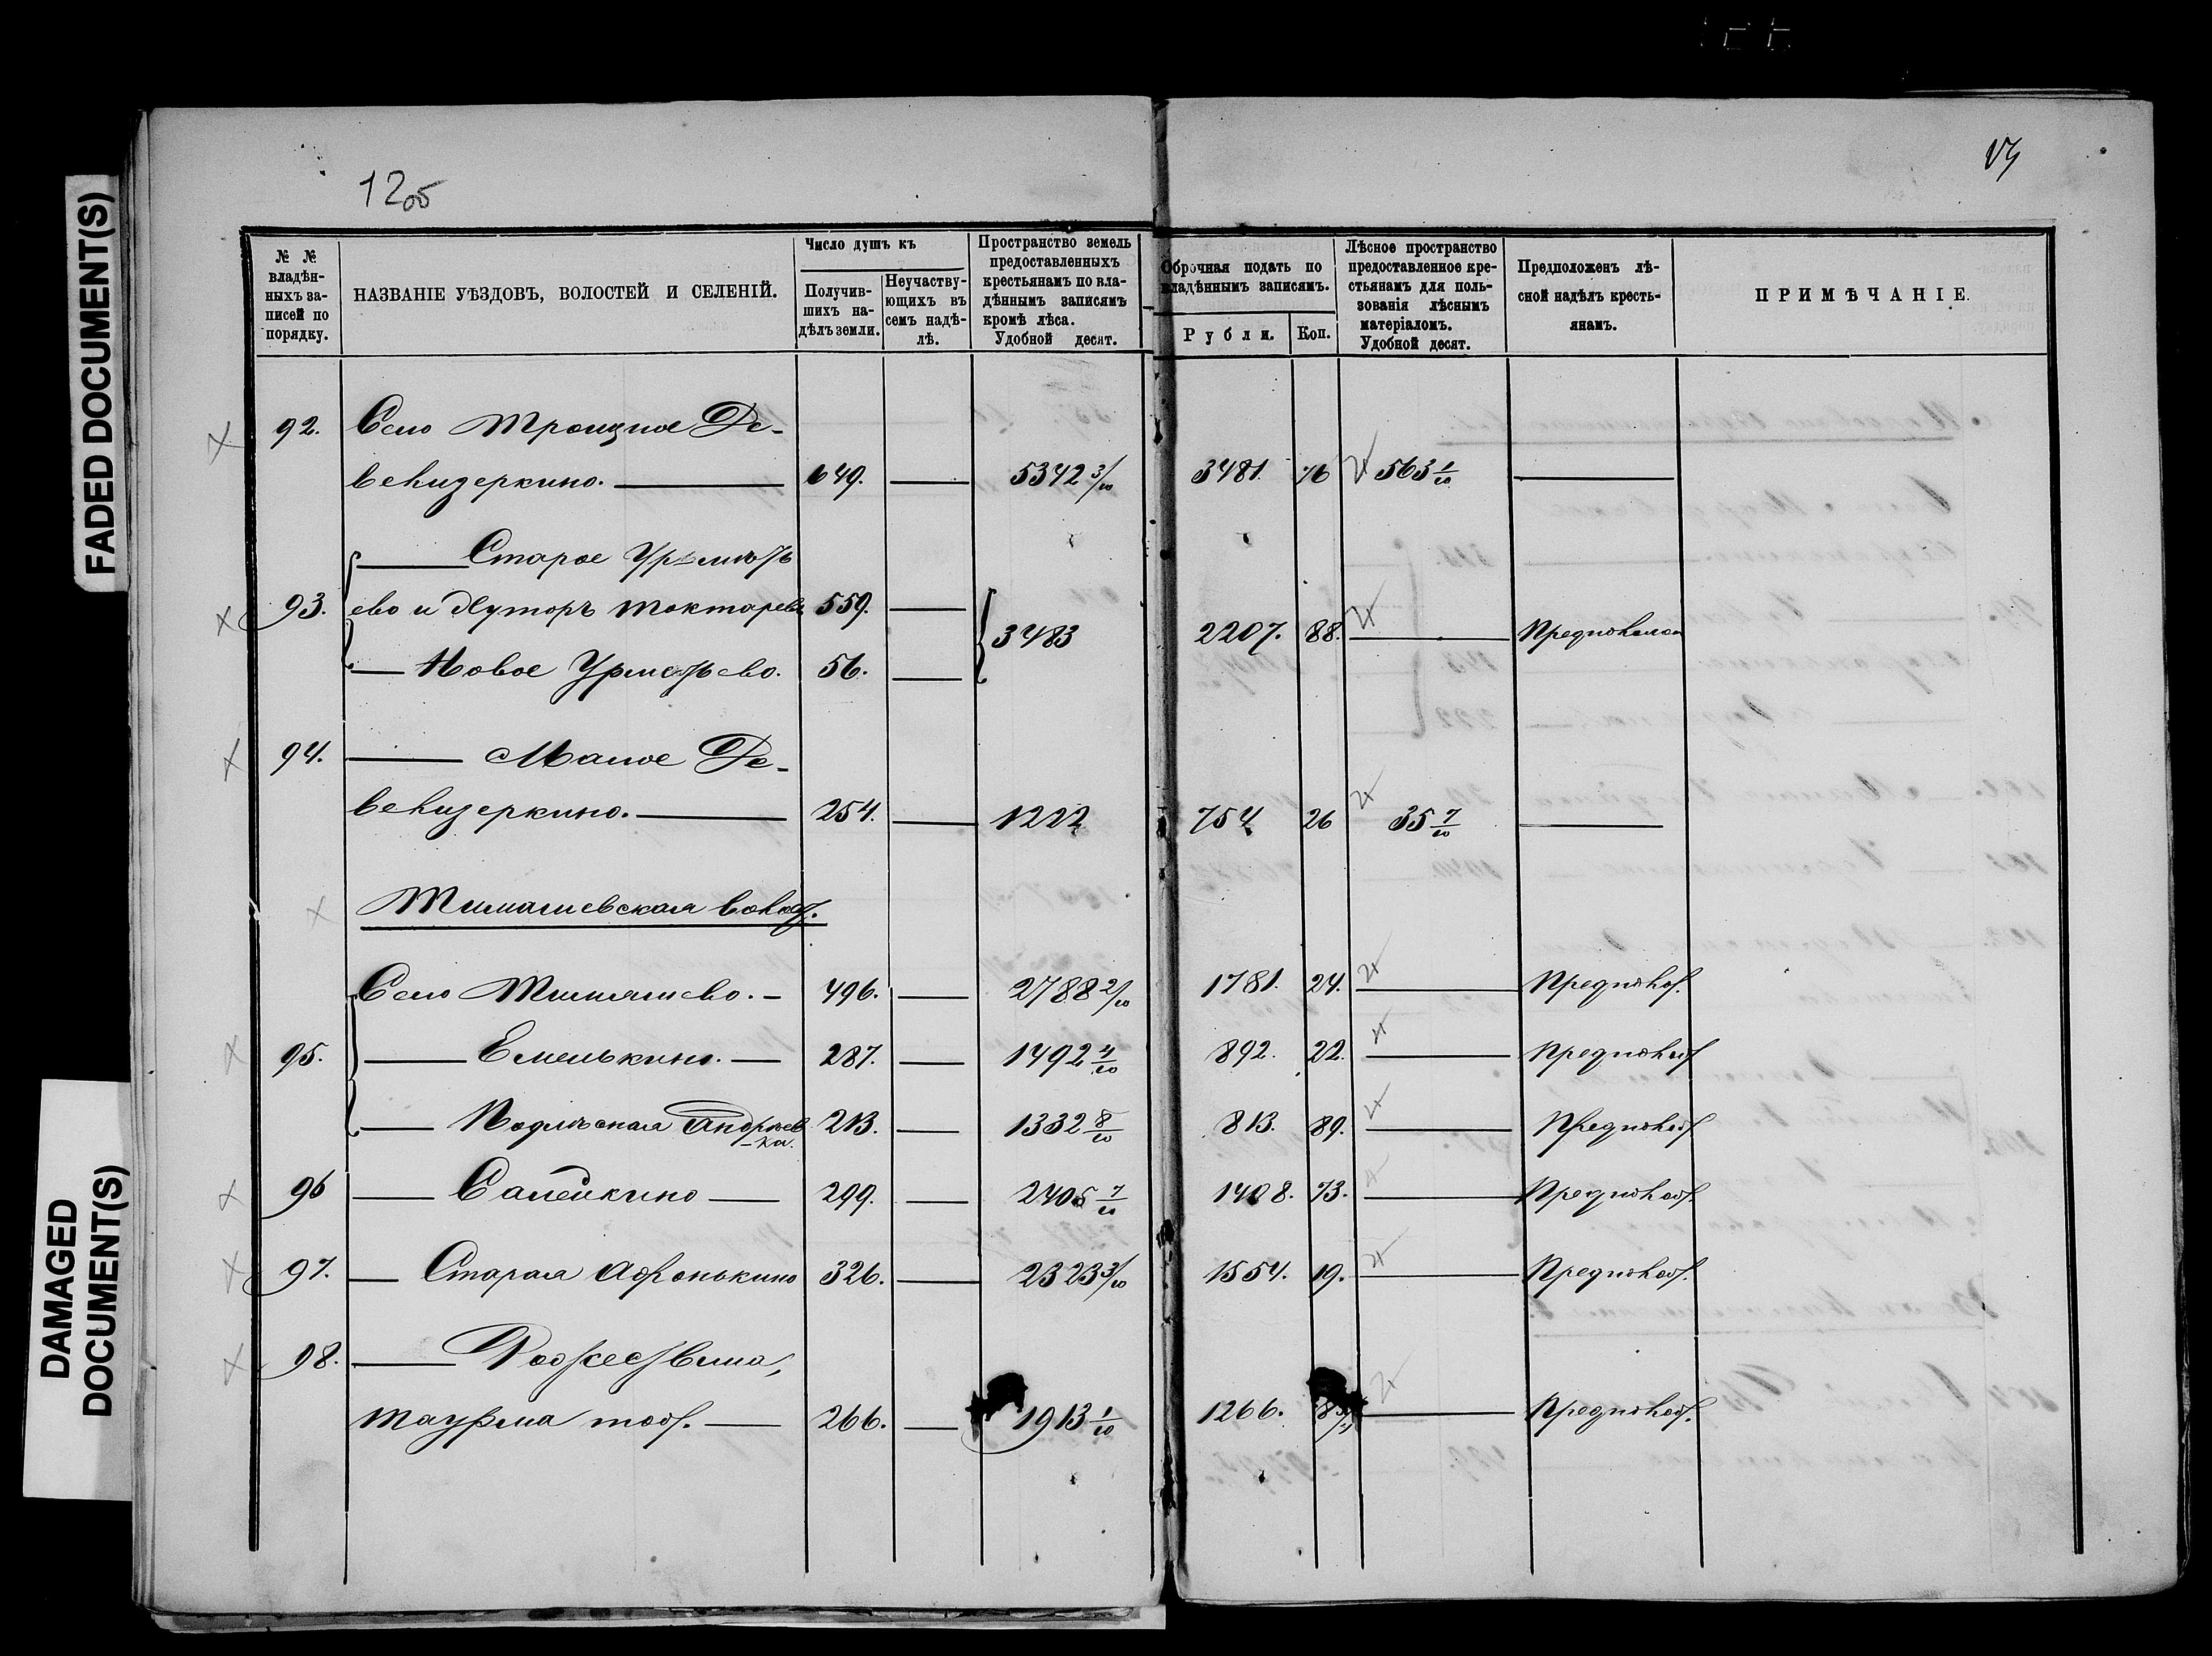 FADED DOCUMENT(S)
DAMAGED
DOCUMENT(S)
12об
№ № владѣн-ныхъ за-писей по порядку.
НАЗВАНІЕ УѢЗДОВЪ, ВОЛОСТЕЙ И СЕЛЕНІЙ.
Число душъ къ
Получив-шихъ на-дѣлъ земли.
Неучаству-ющихъ въ семъ надѣ-лѣ.
Пространство земель предоставленныхъ крестьянамъ по вла-дѣннымъ записямъ кромѣ лѣса.
Удобной десят.
Оброчная подать по владѣннымъ записямъ.
Рубли. Коп.
Лѣсное пространство предоставленное кре-стьянамъ для поль-зованія лѣснымъ матеріаломъ.
Удобной десят.
Предположенъ лѣ-сной надѣлъ кресть-янамъ.
ПРИМѢЧАНІЕ.
92. Село Троицкое Де-
векизеркино. 649. 5342 3/10 3481. 76 563 1/10
Старое Урметь
93. ево и Хуторъ Токтарева 559. 3483 2207. 88. Предположен
Новое Урметьево. 56.
94. Малое Де-
векизеркино. 254. 1222 754 26 35 7/10
Тимяшевская волост.
Село Тимяшево. 496. 2788 2/10 1781. 24. Предпол.
95. Емелькино. 287. 1492 4/10 892. 22. Предполож
Подлѣсная Андреев 213. 1332 8/10 813. 89. Предполож
-ка.
96 Салейкино 299. 2405 7/10 1408. 73. Предполож.
97. Старая Афонькино 326. 2323 3/10 1554. 19. Предполож.
98. Рождествина,
таурма тож. 266. 1913 1/10 1266. Предполож.